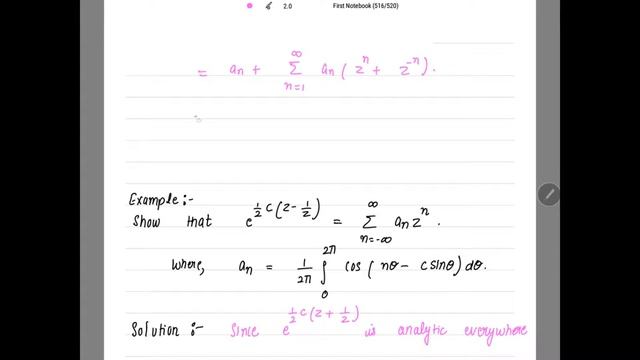 2.0 First Notebook (516/520)
= an + ∞∑n=1 an ( z^n + z^-n ).
Example:-
Show that e^{1/2 c(z - 1/z)} = ∞∑n=-∞ an z^n.
Where, an = 1/2π ∫0^2π cos ( nθ - c sinθ ) dθ.
Solution :- Since e^{1/2 c(z + 1/z)} is analytic everywhere